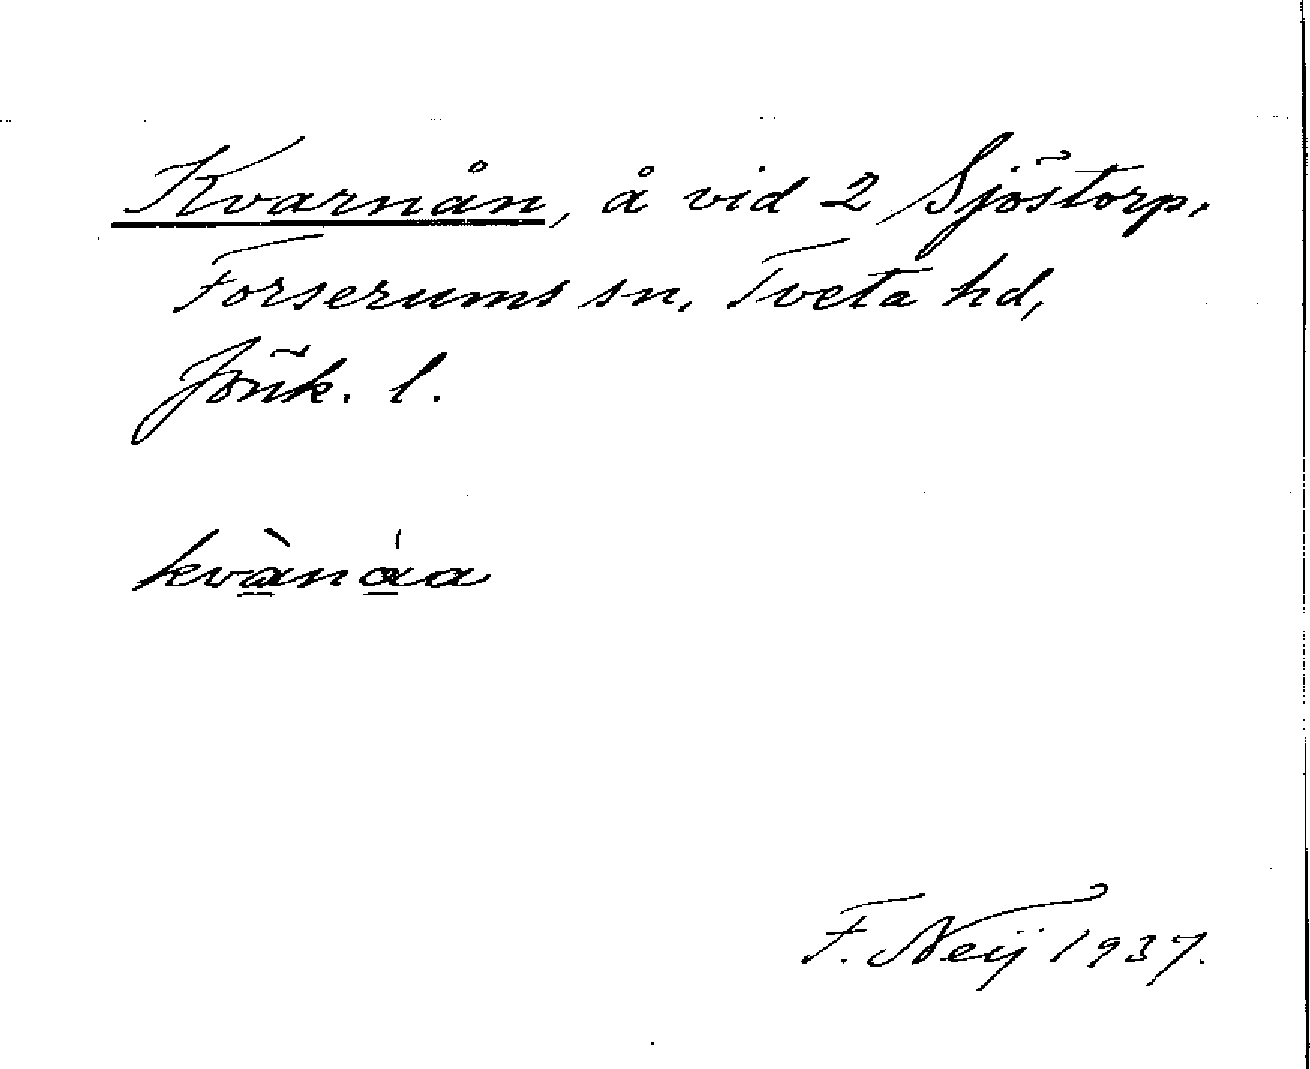 Kvarnån, å vid 2 Sjöstorp,
Forserums sn, Tveta hd,
Jönk. l.
kvànáa
F. Neij 1937.